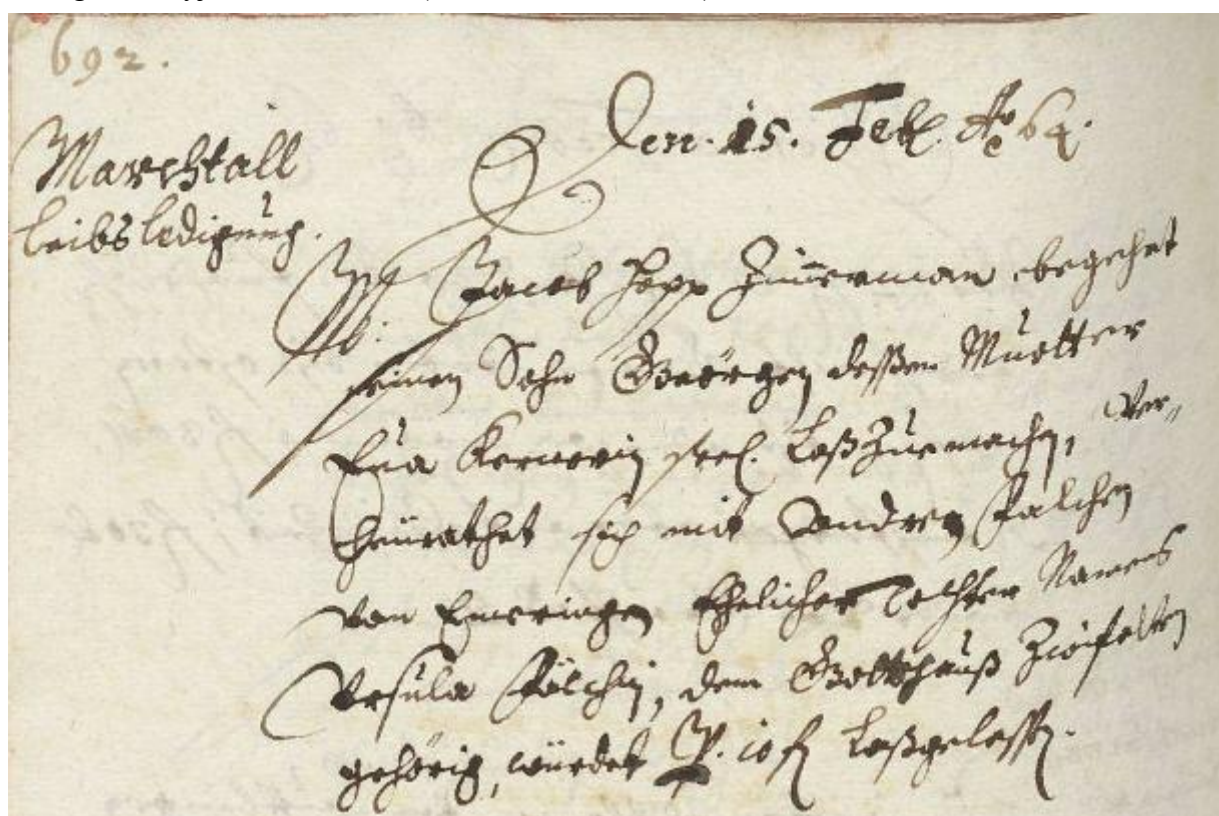 692.
Marchtall
Leibsledigung.
Den. 15. Feb. Ao 64.
Jacob Hepp Zimmerman begehrt
seinen Sohn Geörgen dessen Muetter
Eva Kernerin seel. Loß Zue machen, Ver„
heürathet sich mit Andreen Falchen
von Emeringen Ehelicher Tochter Namens
Vrsula Fälchin, dem Gottshauß Zwifalten
gehörig, würdet P. 10 fl Loßgelassen.